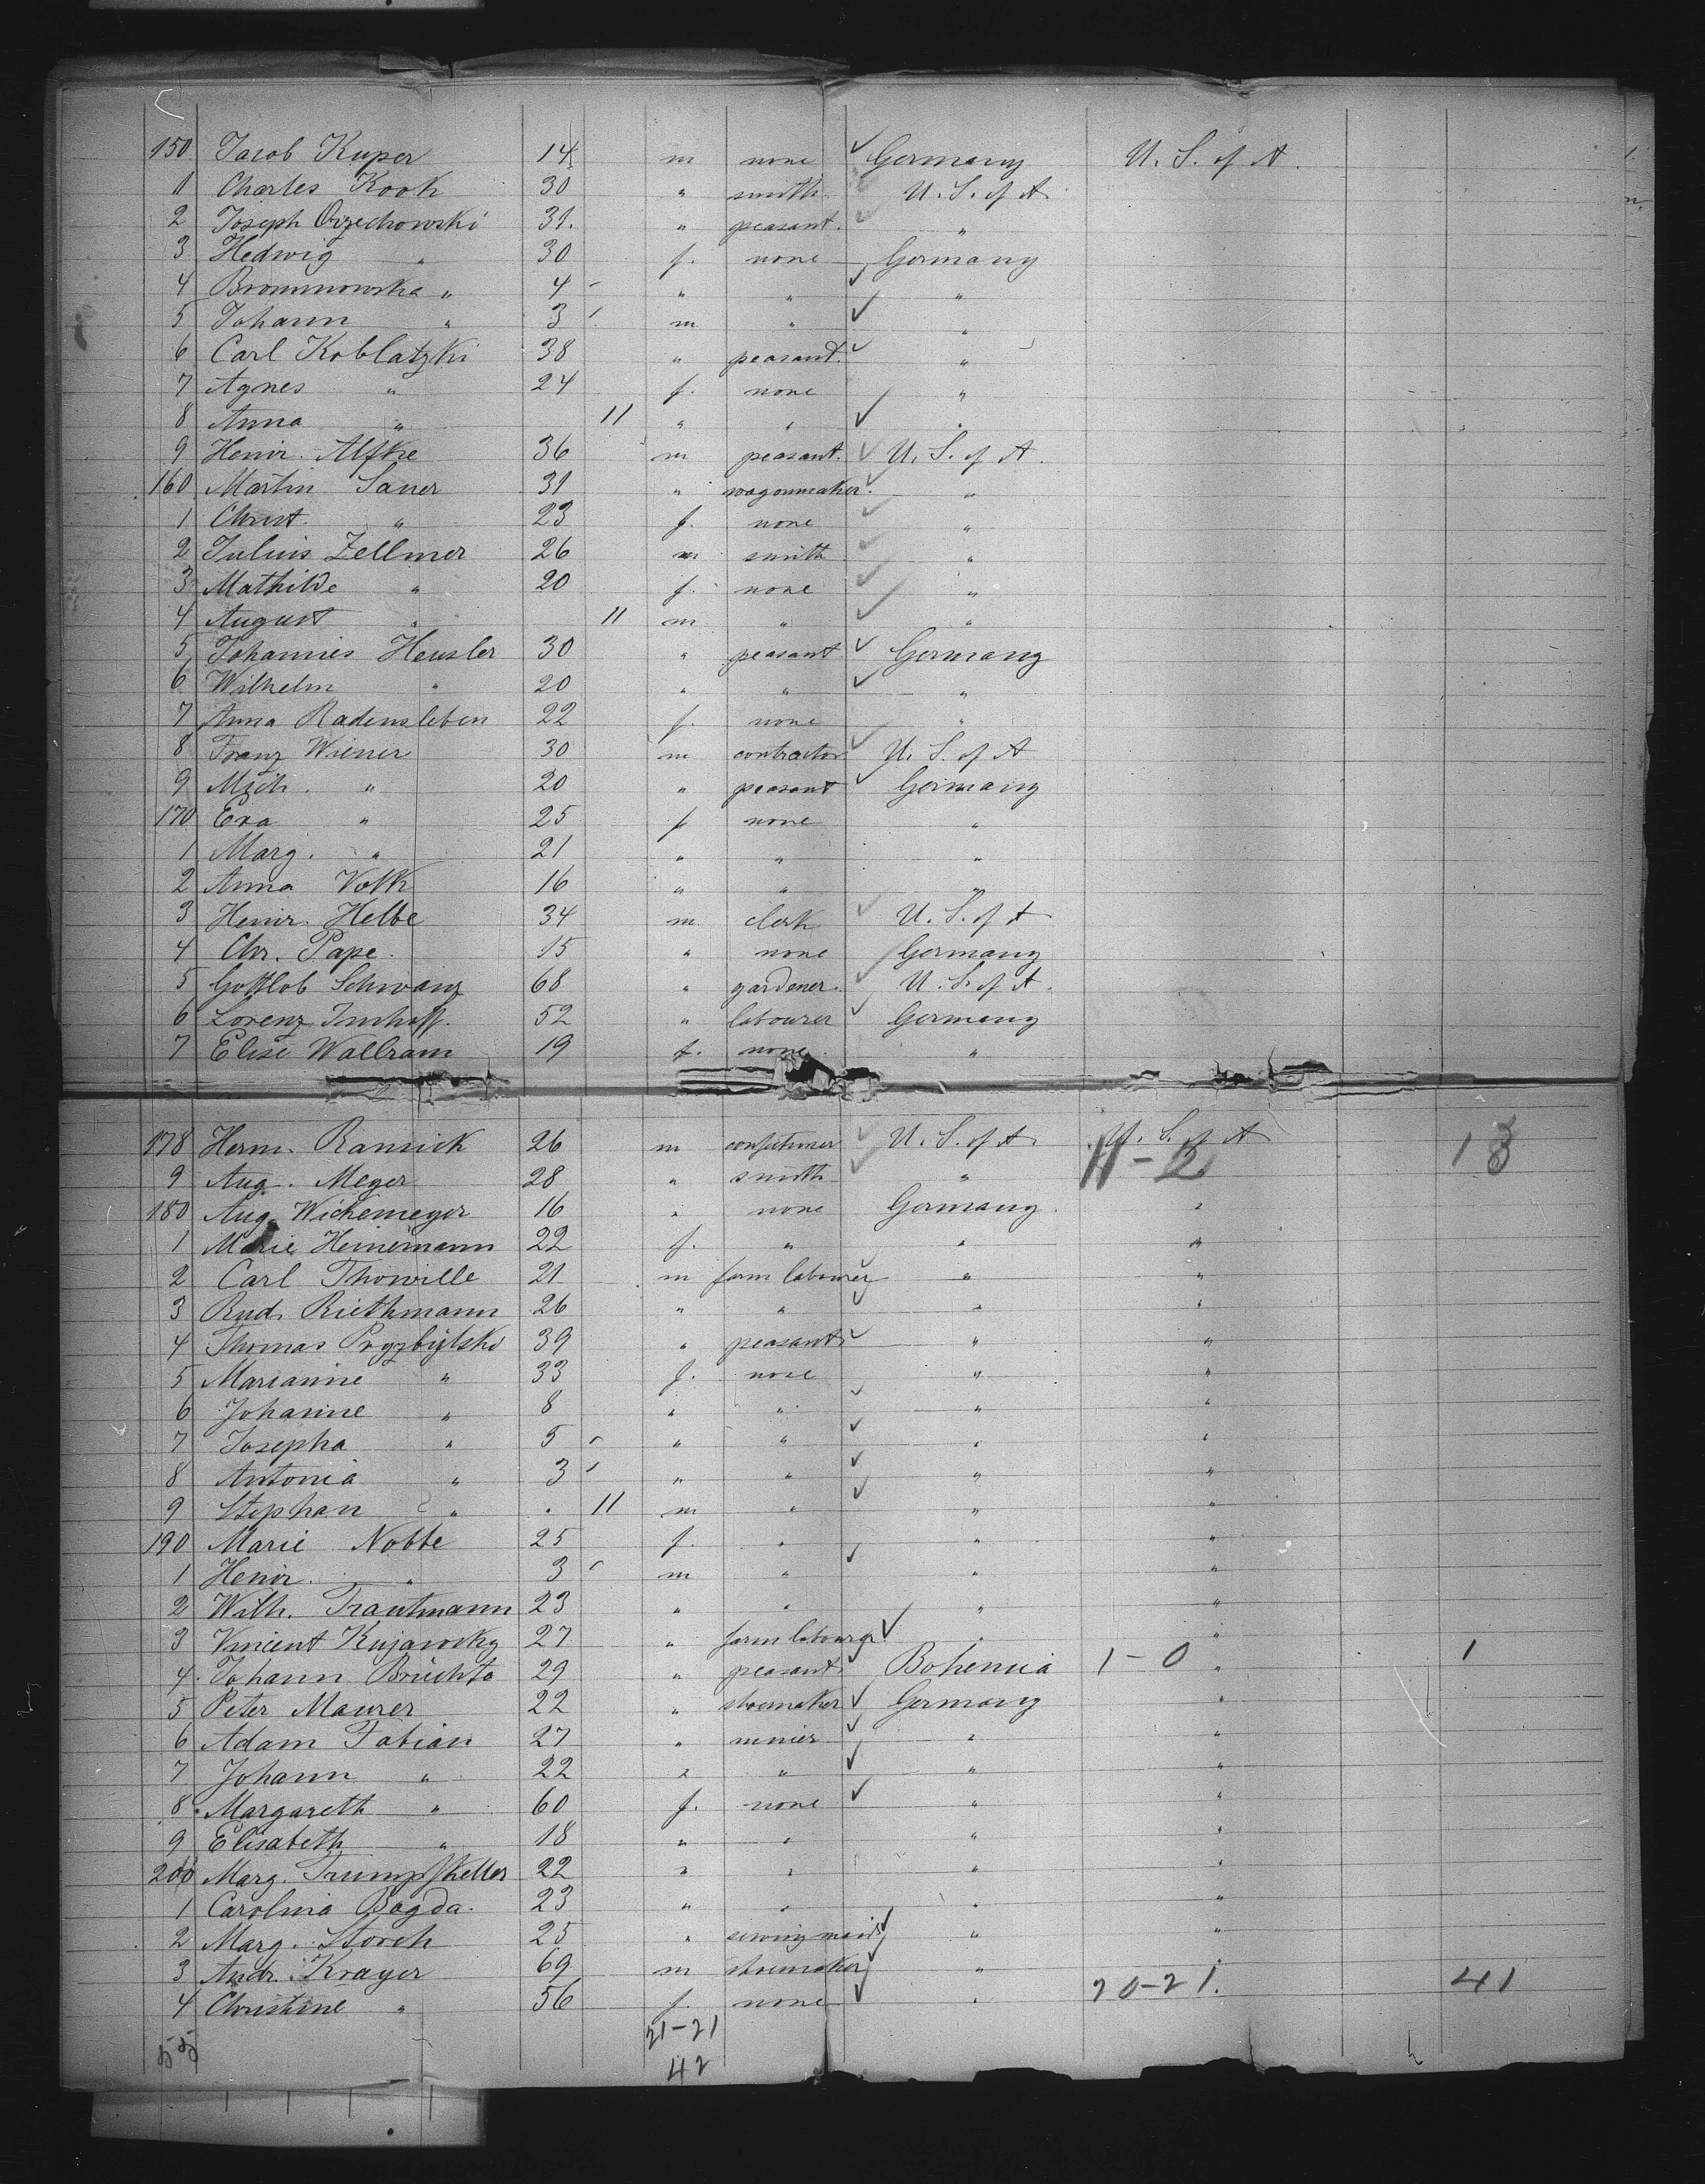 150 Jacob Kuper 14 m none Germany U. S. of A.
1 Charles Kook 30 " smith U. S. of A.
2 Joseph Orzechowski 31. " peasant. "
3 Hedwig " 30 f. none Germany
4 Brommowska " 4 " " "
5 Johann " 3 m " "
6 Carl Koblatzki 38 " peasant. "
7 Agnes " 24 f. none "
8 Anna " 11 " " "
9 Heinr. Alfke 36 m peasant. U. S. of A.
160 Martin Sauer 31 " wagonmaker. "
1 Christ. " 23 f. none "
2 Julius Zellmer 26 m smith "
3 Mathilde " 20 f. none "
4 August " 11 m " "
5 Johannes Hensler 30 " peasant Germany
6 Wilhelm " 20 " " "
7 Anna Radensleben 22 f. none "
8 Franz Wiener 30 m contractor U. S. of A
9 Mich. " 20 " peasant Germany
170 Eva " 25 f none "
1 Marg. " 21 " " "
2 Anna Volk 16 " " "
3 Heinr. Helbe 34 m clerk U. S. of A
4 Chr. Pape. 15 " none Germany
5 Gottlob Schwanz 68 " gardener. U. S. of A.
6 Lorenz Imhoff. 52 " labourer Germany
7 Elise Wallram 19 f. none. "
178 Herm. Ransick 26 m confitioner U. S. of A. U. S. of A
11-2 13
9 Aug. Meyer 28 " smith "
180 Aug. Wichemeyer 16 " none Germany. "
1 Marie Heinemann 22 f. " " "
2 Carl Thowille 21 m farm labourer " "
3 Rud. Riethmann 26 " " " "
4 Thomas Prgzbijlski 39 " peasant " "
5 Marianne " 33 f. none " "
6 Johanne " 8 " " " "
7 Josepha " 5 " " " "
8 Antonia " 3 " " " "
9 Stephan " . 11 m " " "
190 Marie Nobbe 25 f. " " "
1 Heinr. " 3 m " " "
2 Wilh. Trautmann 23 " " " "
3 Vincent Kujawsky 27 " farm labourer " "
4. Johann Bruchta 29 " peasant Bohemia 1-0 " 1
5 Peter Maurer 22 " shoemaker Germany "
6 Adam Fabian 27 " minier " "
7 Johann " 22 " " " "
8 Margareth " 60 f. none " "
9 Elisabeth " 18 " " " "
200 Marg. Trumpfheller 22 " " " "
1 Carolina Bogda. 23 " " " "
2 Marg. Storch 25 " serving maid " "
3 Andr. Krayer 69 m shoemaker " "
4 Christine " 56 f. none " 20-21. 41
55 21-21
42